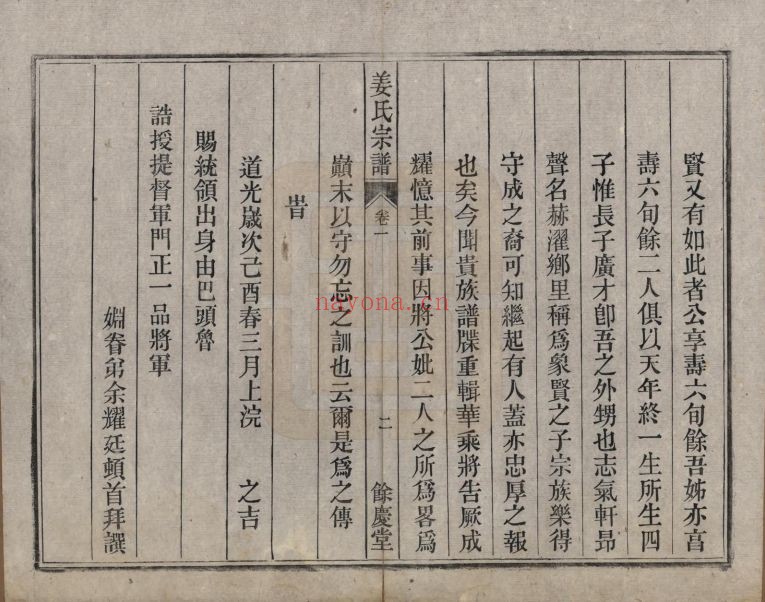 賢又有如此者公享壽六旬餘吾姊亦亯
壽六旬餘二人俱以天年終一生所生四
子惟長子廣才卽吾之外甥也志氣軒昻
聲名赫濯鄉里稱爲象賢之子宗族樂得
守成之裔可知繼起有人蓋亦忠厚之報
也矣今聞貴族譜牒重輯華乘將告厥成
耀憶其前事因將公妣二人之所爲畧爲
姜氏宗譜 卷一 二 餘慶堂
巔末以守勿忘之訓也云爾是爲之傳
旹
道光歲次己酉春三月上浣 之吉
賜統領出身由巴頭魯
誥授提督軍門正一品將軍
姻眷弟余耀廷頓首拜譔
nayona.cn